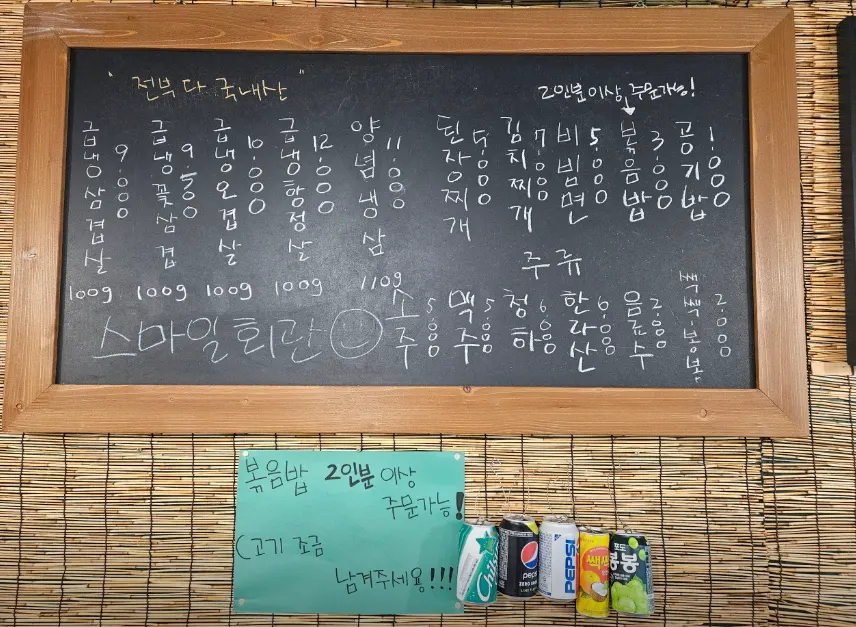 "전부 다 국내산"
2인분 이상, 주문가능!
급냉삼겹살 9.000 100g
급냉꽃삼겹 9.500 100g
급냉오겹살 10.000 100g
급냉항정살 12.000 100g
양념냉삼 11.000 110g
된장찌개 5.000
김치찌개 7.000
비빔면 5.000
볶음밥 3.000
공기밥 1.000
주류
소주 5.000
맥주 5.000
청하 6.000
한라산 6.000
음료수 2.000
쌕쌕·봉봉 2.000
스마일회관
볶음밥 2인분 이상
주문가능!
(고기 조금
남겨주세용!!!
Chil
pepsi
ZERO
PEPSI
쌕쌕
포도
봉봉